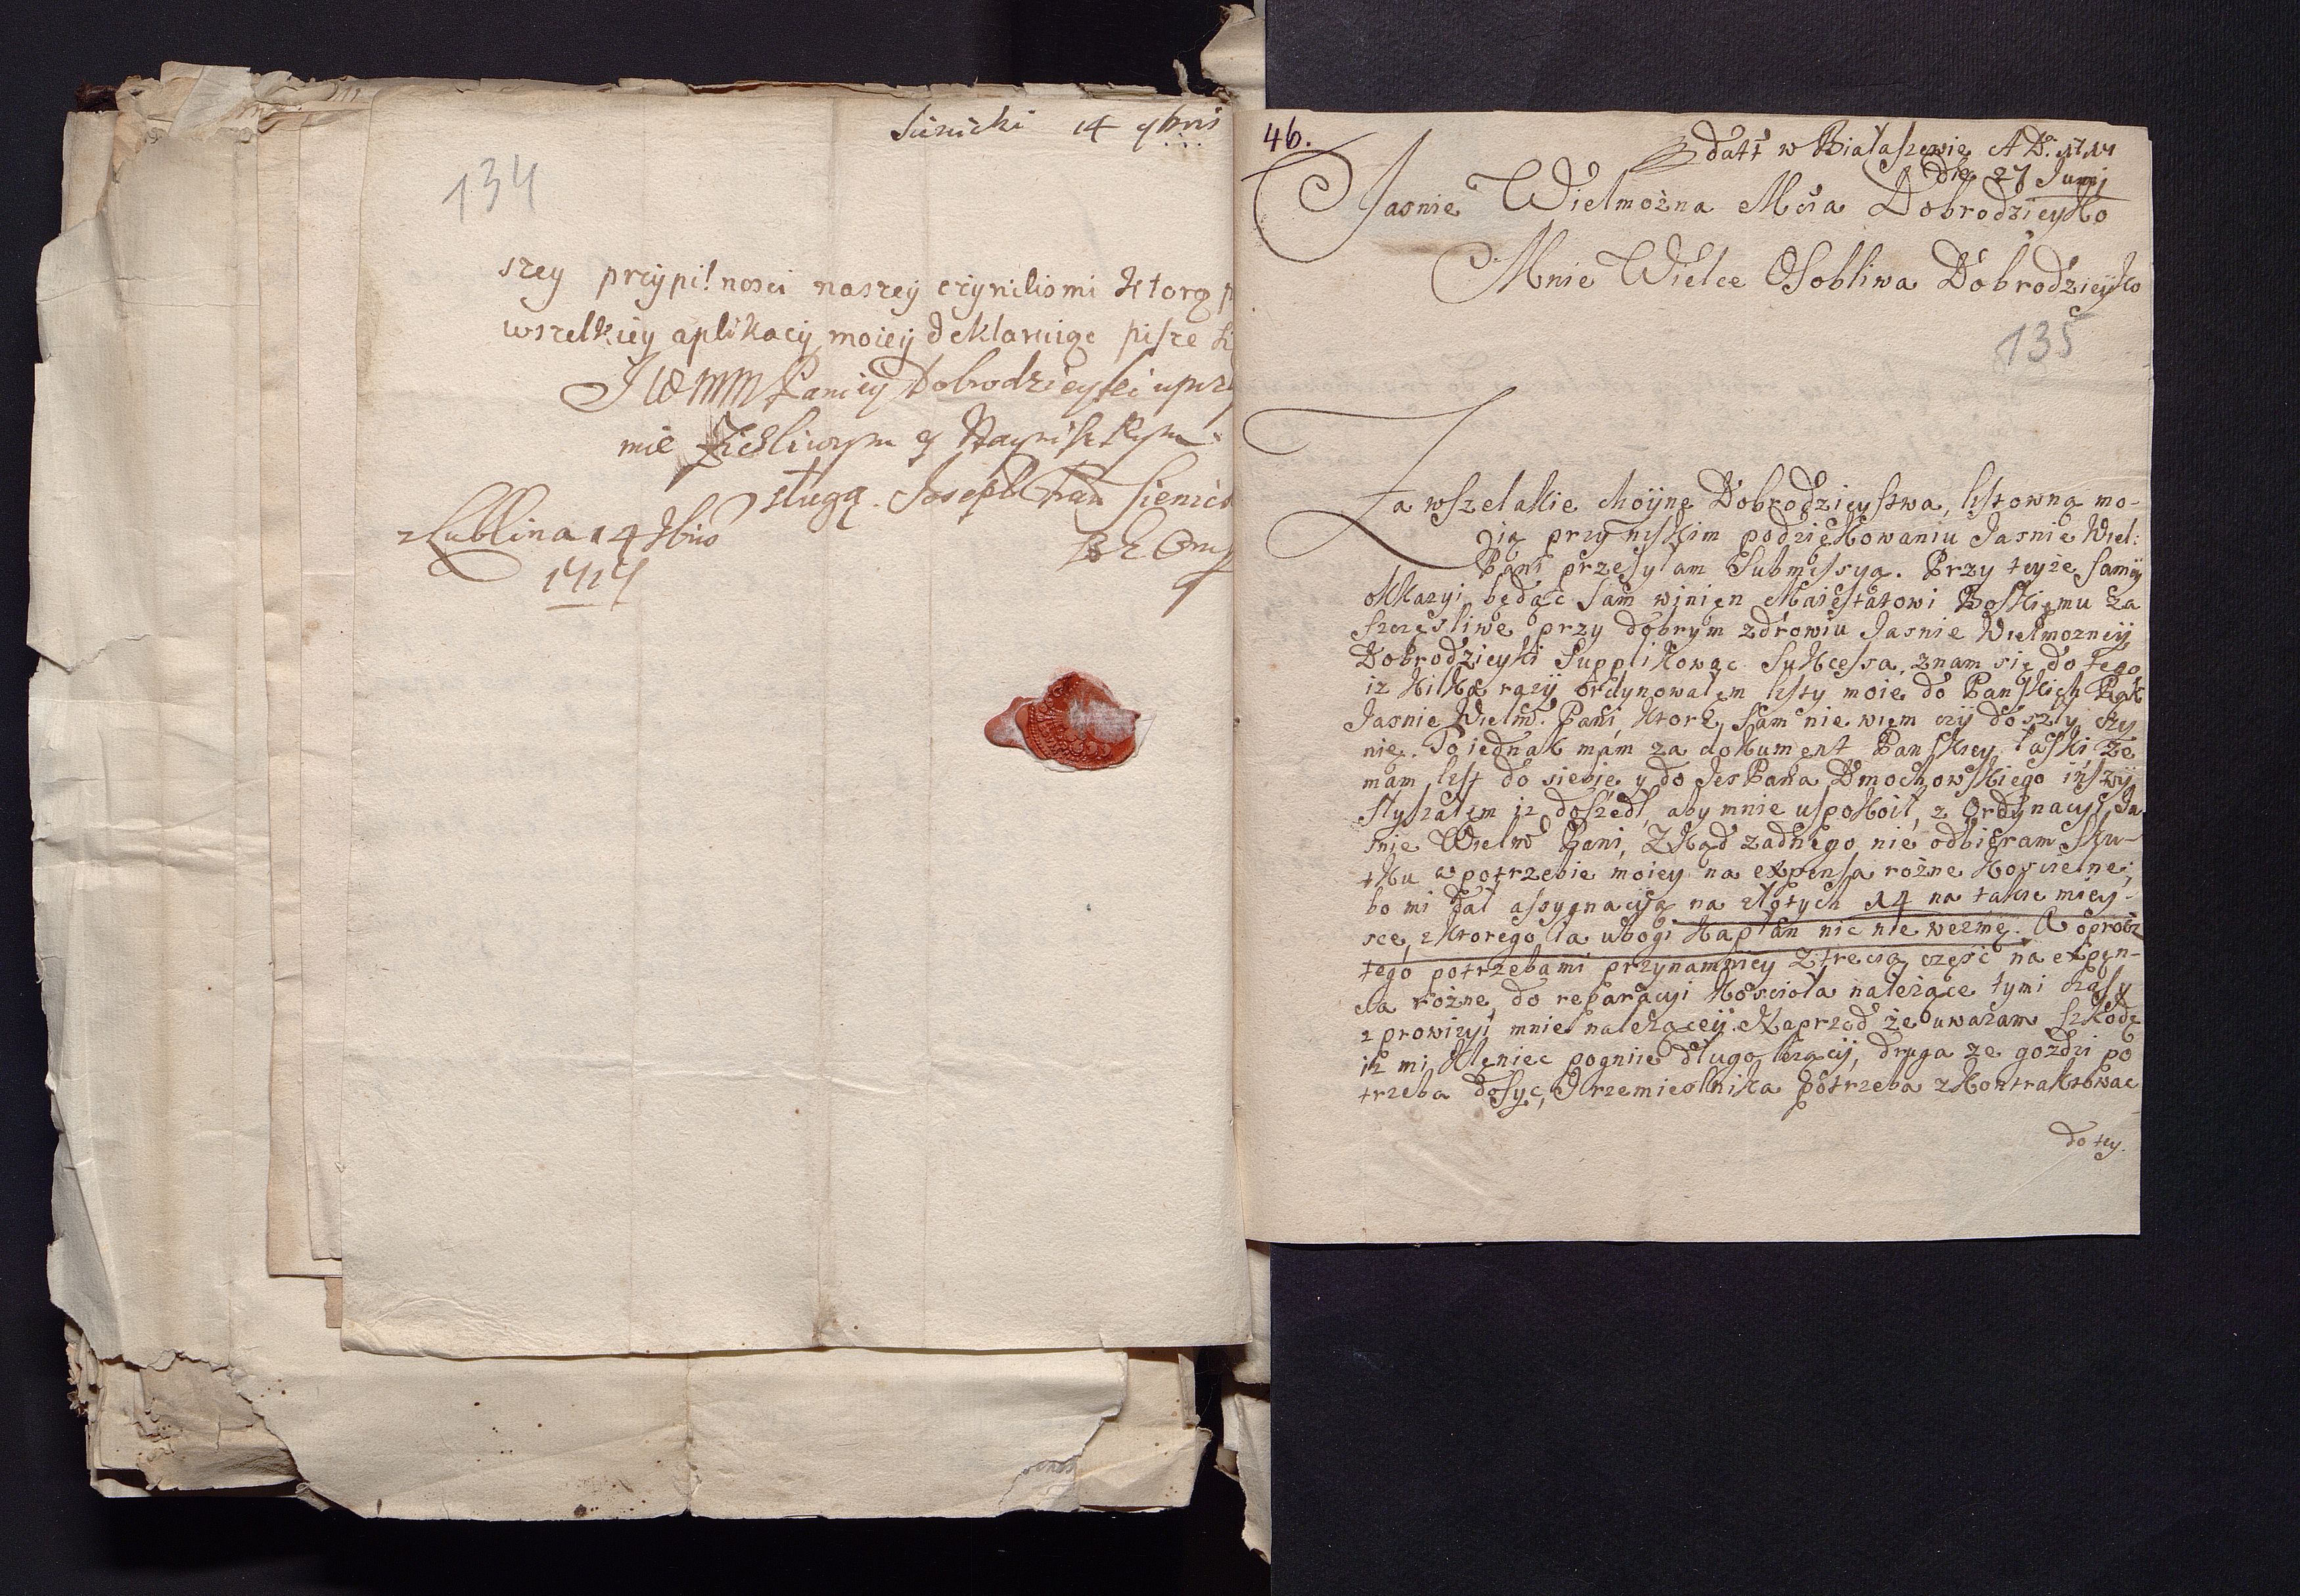 Sienicki 14 9bris
134
szey przypilnosci naszey czynilismi Ktorą
wszelkiey aplikacij moieij deklaruiąc pisze
JWMM Paniey Dobrodzieyki uprzy
mie Zyczliwym y Nayniszszym
sługą. Joseph Fran Sienick
z Lublina 14 9bris
1717
46.
Datt w Białaszewie A D. 1717
die 27 Junij
Jasnie Wielmożna Mcia Dobrodzieyko
Mnie Wielce Osobliwa Dobrodzieyko
135
Za wszelakie hoÿne Dobrodzieystwa, listowną mo-
ię przy niskim podziękowaniu Jasnie Wiel:
Pani przesyłam Submissyą. Przy teyże samey
okkazyi będąc sam winien Maiestatowi Boskiemu za
szczęsliwe przy dobrym zdrowiu Jasnie Wielmozneij
Dobrodzieyki Supplikować Sukcessa, znam się do tego
iz kilka razÿ ordynowałem listy moie do Panskich Rąk
Jasnie Wielm. Pani, ktore, sam nie wiem czÿ doszły czy
nie. To iednak mam za dokument Panskiey łaski, że
mam list do siebie y do Jes Pana Dmochowskiego inszÿ
słyszałem iz doszedł, aby mnie uspokoił, z Ordynacyi Ja
snie Wielm Pani, Zkąd zadnego nie odbieram sku-
tku w potrzebie moiey na expensa rożne koscielne,
bo mi dał assygnacÿą na złotych 14 na takie miey-
sce, z ktorego ia ubogi kapłan nic nie wezmę. A oprocz
tego potrzeba mi przynamniey z trzecią częsć na expen-
sa rożne, do reparacyi koscioła nalezące tymi czasy
z prowizyi mnie nalezącey. Naprzod że uwazam szkodę
iz mi Kleniec pogniie długo leżącÿ, druga ze gozdzi po
trzeba dosyc, Rzemieslnika potrzeba zkontraktować
do tey.